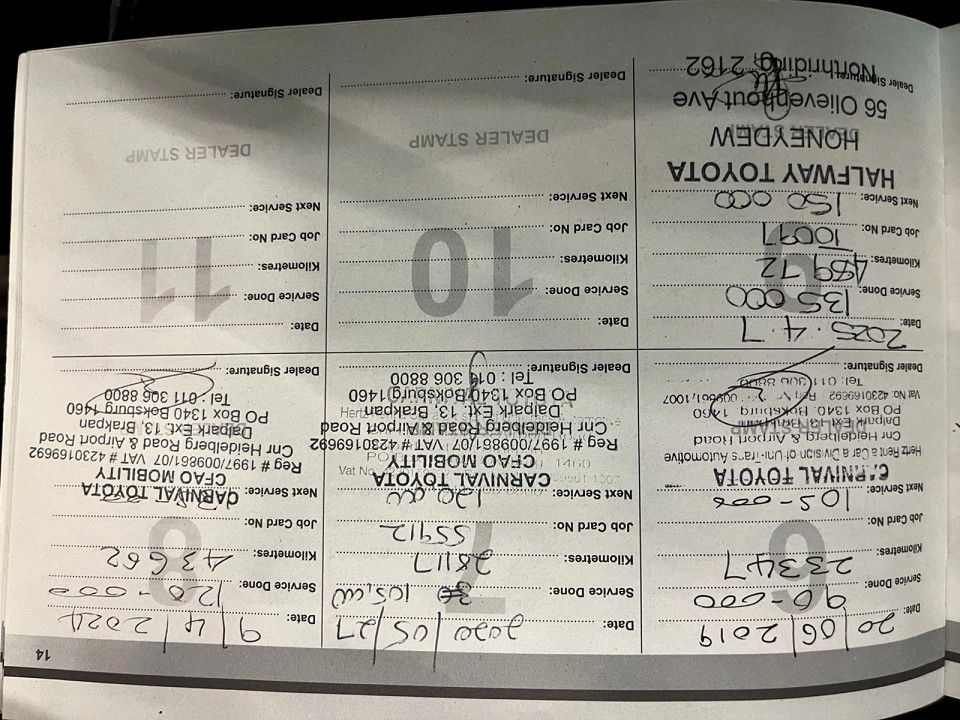 14
Date: 20/06/2019
Service Done: 90-000
Kilometres: 23347
Job Card No:
Next Service: 105-000
CARNIVAL TOYOTA
Hertz Rent a Car a Division of Unitrans Automotive
Cnr Heidelberg & Airport Road
Dalpark Ext 13, Brakpan
PO Box 1340, Boksburg, 1460
Vat No: 4230169692 Reg
Tel: 011 306 8800
Dealer Signature:
7
Date: 2020/05/27
Service Done: 105,000
Kilometres: 28117
Job Card No: 55912
Next Service: 120 000
CARNIVAL TOYOTA
CFAO MOBILITY
Reg # 1997/009861/07 VAT # 4230169692
Cnr Heidelberg Road & Airport Road
Dalpark Ext. 13, Brakpan
PO Box 1340 Boksburg 1460
Tel : 011 306 8800
Dealer Signature:
8
Date: 9/4/2024
Service Done: 120-000
Kilometres: 43662
Job Card No:
Next Service:
CARNIVAL TOYOTA
CFAO MOBILITY
Reg # 1997/009861/07 VAT # 4230169692
Cnr Heidelberg Road & Airport Road
Dalpark Ext. 13, Brakpan
PO Box 1340 Boksburg 1460
Tel : 011 306 8800
Dealer Signature:
Date: 2025.4.7
Service Done: 135 000
Kilometres: 48972
Job Card No: 10097
Next Service: 150 000
HALFWAY TOYOTA
HONEYDEW
DEALER STAMP
56 Olievenhout Ave
Northriding, 2162
Dealer Signature:
10
Date:
Service Done:
Kilometres:
Job Card No:
Next Service:
DEALER STAMP
Dealer Signature:
11
Date:
Service Done:
Kilometres:
Job Card No:
Next Service:
DEALER STAMP
Dealer Signature: